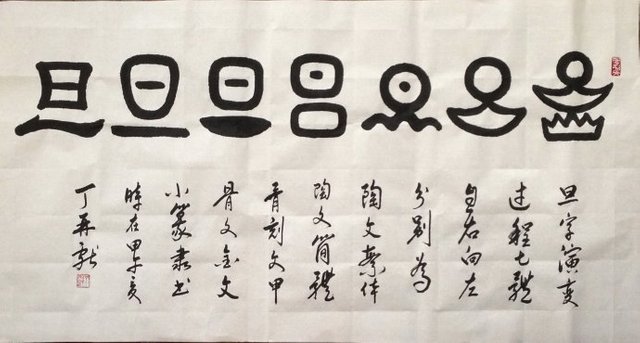 旦旦旦旦旦旦旦
旦字演变
过程七體
自右向左
分别為
陶文繁体
陶文简體
骨刻文甲
骨文金文
小篆隶书
時在甲午夏
丁再献